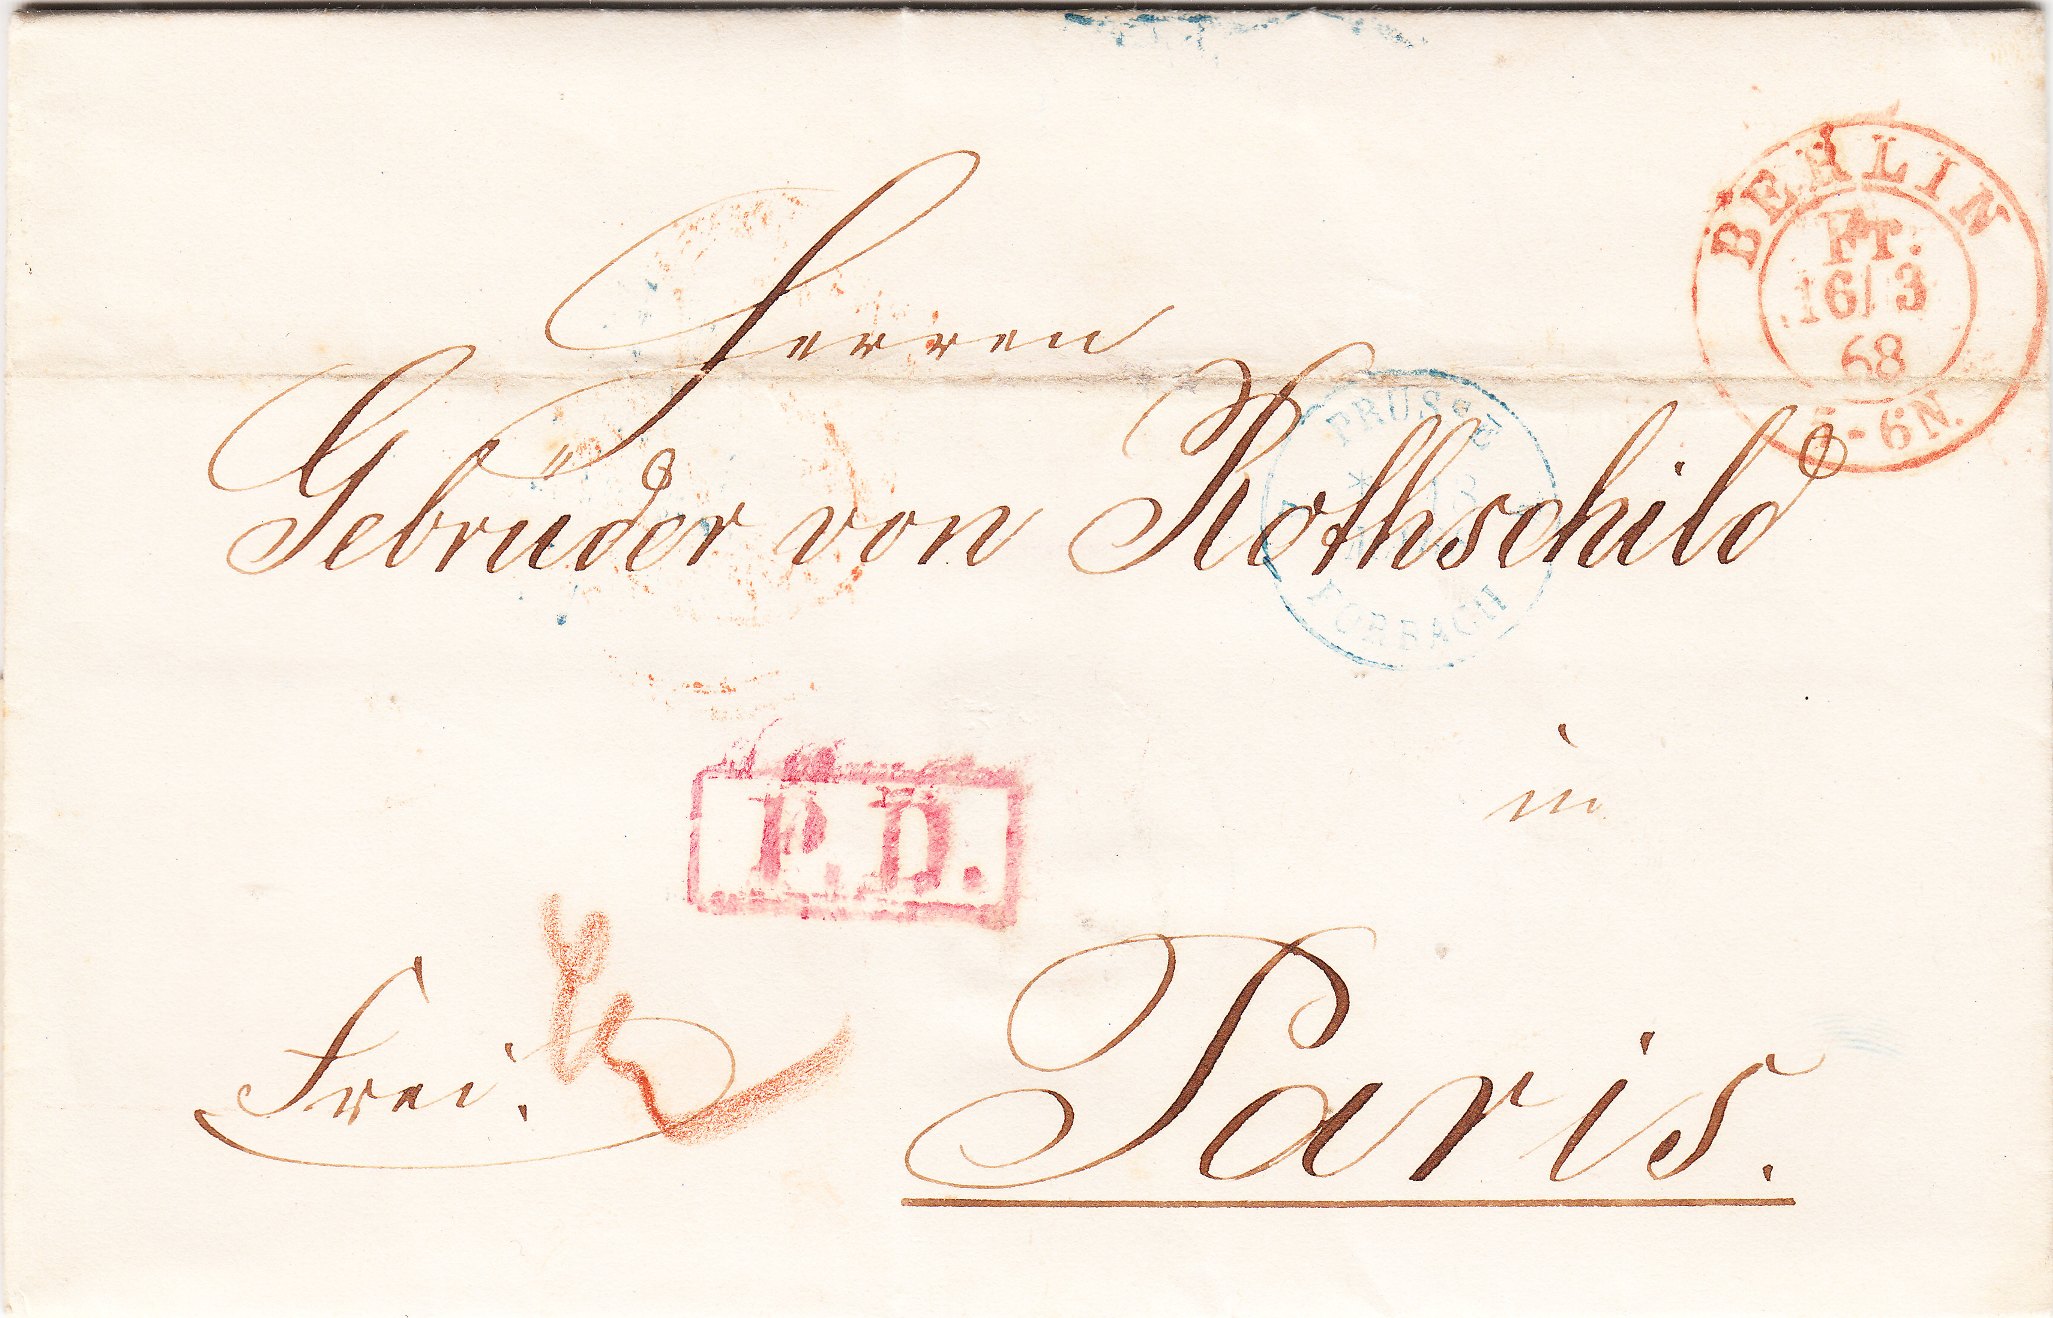 BERLIN
Fr.
16/3
68
5-6N.
Herren
Gebrüder von Rothschild
PRUSSE
FORBACH
in
P.D.
Frei.
Paris.